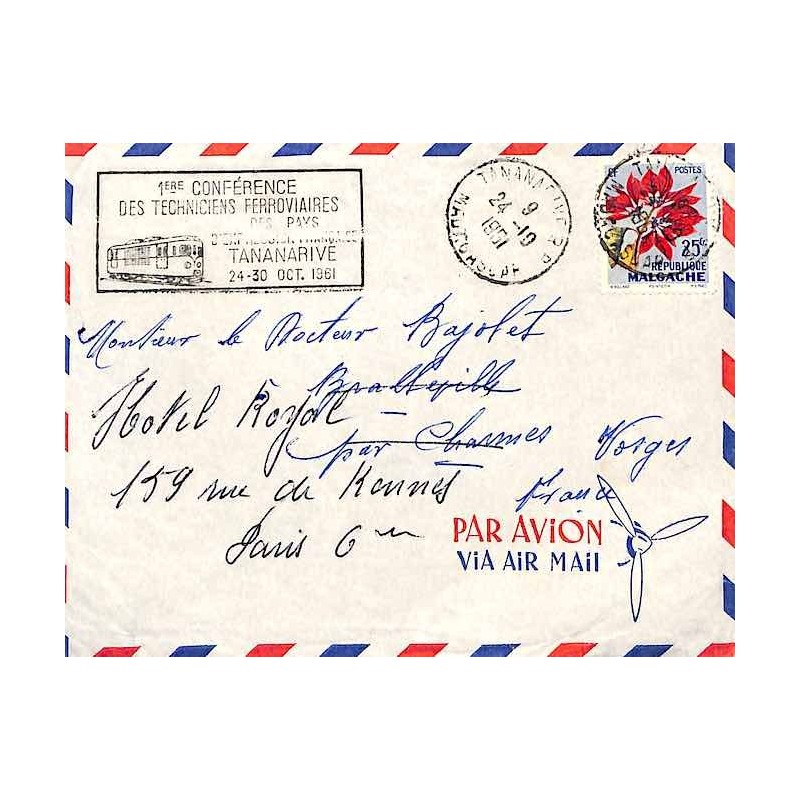 1ERE CONFÉRENCE
DES TECHNICIENS FERROVIAIRES
DES PAYS
TANANARIVE
24-30 OCT. 1961
TANANARIVE R.P.
9
24-10
1961
POSTES
25F
RÉPUBLIQUE
MALGACHE
Monsieur le Docteur Bajolet
Hotel Royal
par Charmes Vosges
159 rue de Rennes
France
Paris 6
PAR AVION
VIA AIR MAIL